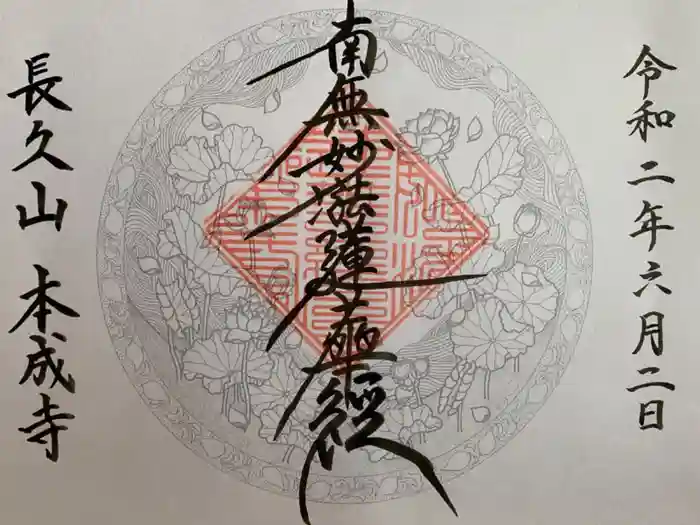 令和二年六月二日
南無妙法蓮華経
長久山 本成寺